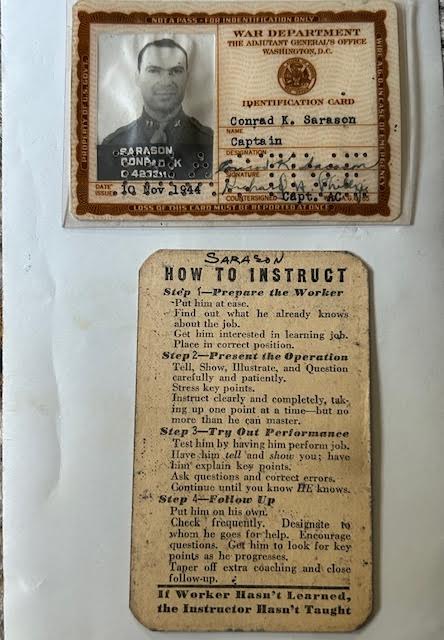 NOT A PASS - FOR INDENTIFICATION ONLY
PROPERTY OF U.S. GOVT.
WIRE A.G.O. IN CASE OF EMERGENCY
WAR DEPARTMENT
THE ADJUTANT GENERAL'S OFFICE
WASHINGTON, D.C.
IDENTIFICATION CARD
Conrad K. Sarason
NAME
Captain
DESIGNATION
SIGNATURE
COUNTERSIGNED Capt. AC
SARASON
CONRAD K
DATE ISSUED 10 Nov 1944
LOSS OF THIS CARD MUST BE REPORTED AT ONCE
SARASON
HOW TO INSTRUCT
Step 1—Prepare the Worker
Put him at ease.
Find out what he already knows
about the job.
Get him interested in learning job.
Place in correct position.
Step 2—Present the Operation
Tell, Show, Illustrate, and Question
carefully and patiently.
Stress key points.
Instruct clearly and completely, tak-
ing up one point at a time—but no
more than he can master.
Step 3—Try Out Performance
Test him by having him perform job.
Have him tell and show you; have
him explain key points.
Ask questions and correct errors.
Continue until you know HE knows.
Step 4—Follow Up
Put him on his own.
Check frequently. Designate to
whom he goes for help. Encourage
questions. Get him to look for key
points as he progresses.
Taper off extra coaching and close
follow-up.
If Worker Hasn't Learned,
the Instructor Hasn't Taught